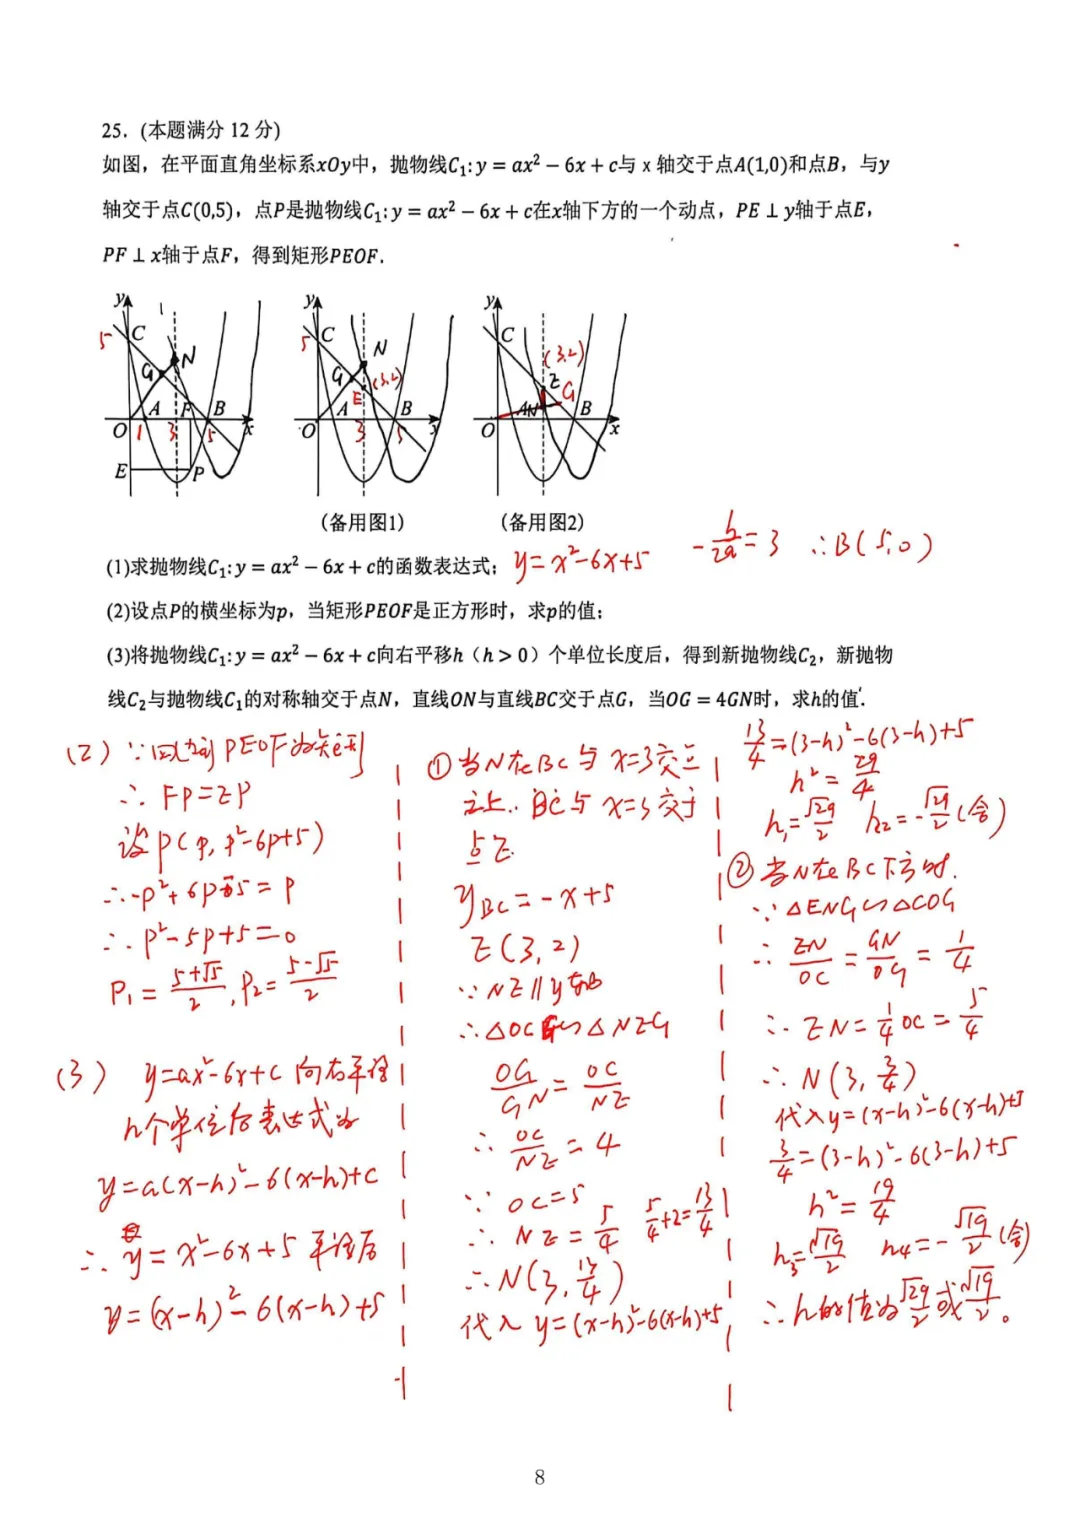 25. (本题满分 12 分)
如图，在平面直角坐标系xOy中，抛物线C₁: y = ax² − 6x + c与 x 轴交于点A(1,0)和点B，与y
轴交于点C(0,5)，点P是抛物线C₁: y = ax² − 6x + c在x轴下方的一个动点，PE ⊥ y轴于点E，
PF ⊥ x轴于点F，得到矩形PEOF.
y
5
C
N
G
A
F
B
O
1
3
5
x
E
P
y
5
C
N
G
E
(3,2)
A
B
O
3
5
x
y
C
(3,2)
E
G
A
N
B
O
x
(备用图1)
(备用图2)
(1)求抛物线C₁: y = ax² − 6x + c的函数表达式; y=x²-6x+5 -b/2a=3 ∴B(5,0)
(2)设点P的横坐标为p，当矩形PEOF是正方形时，求p的值;
(3)将抛物线C₁: y = ax² − 6x + c向右平移h（h > 0）个单位长度后，得到新抛物线C₂，新抛物
线C₂与抛物线C₁的对称轴交于点N，直线ON与直线BC交于点G，当OG = 4GN时，求h的值.
(2) ∵四边形PEOF为矩形
∴FP=EP
设P(p, p²-6p+5)
∴-p²+6p-5=p
∴p²-5p+5=0
P₁=(5+√5)/2, P₂=(5-√5)/2
(3) y=ax²-6x+c向右平移
h个单位后表达式为
y=a(x-h)²-6(x-h)+c
∴y=x²-6x+5平移后
y=(x-h)²-6(x-h)+5
①当N在BC与x=3交点
之上∴BC与x=3交于
点E
yBC=-x+5
E(3,2)
∵NE∥y轴
∴△OCG∽△NEG
OG/GN=OC/NE
∴OC/NE=4
∵OC=5
∴NE=5/4 5/4+2=13/4
∴N(3, 13/4)
代入y=(x-h)²-6(x-h)+5
13/4=(3-h)²-6(3-h)+5
h²=29/4
h₁=√29/2 h₂=-√29/2(舍)
②当N在BC下方时.
∵△ENG∽△COG
∴EN/OC=GN/OG=1/4
∴EN=1/4OC=5/4
∴N(3, 3/4)
代入y=(x-h)²-6(x-h)+5
3/4=(3-h)²-6(3-h)+5
h²=19/4
h₃=√19/2 h₄=-√19/2(舍)
∴h的值为√29/2或√19/2。
8